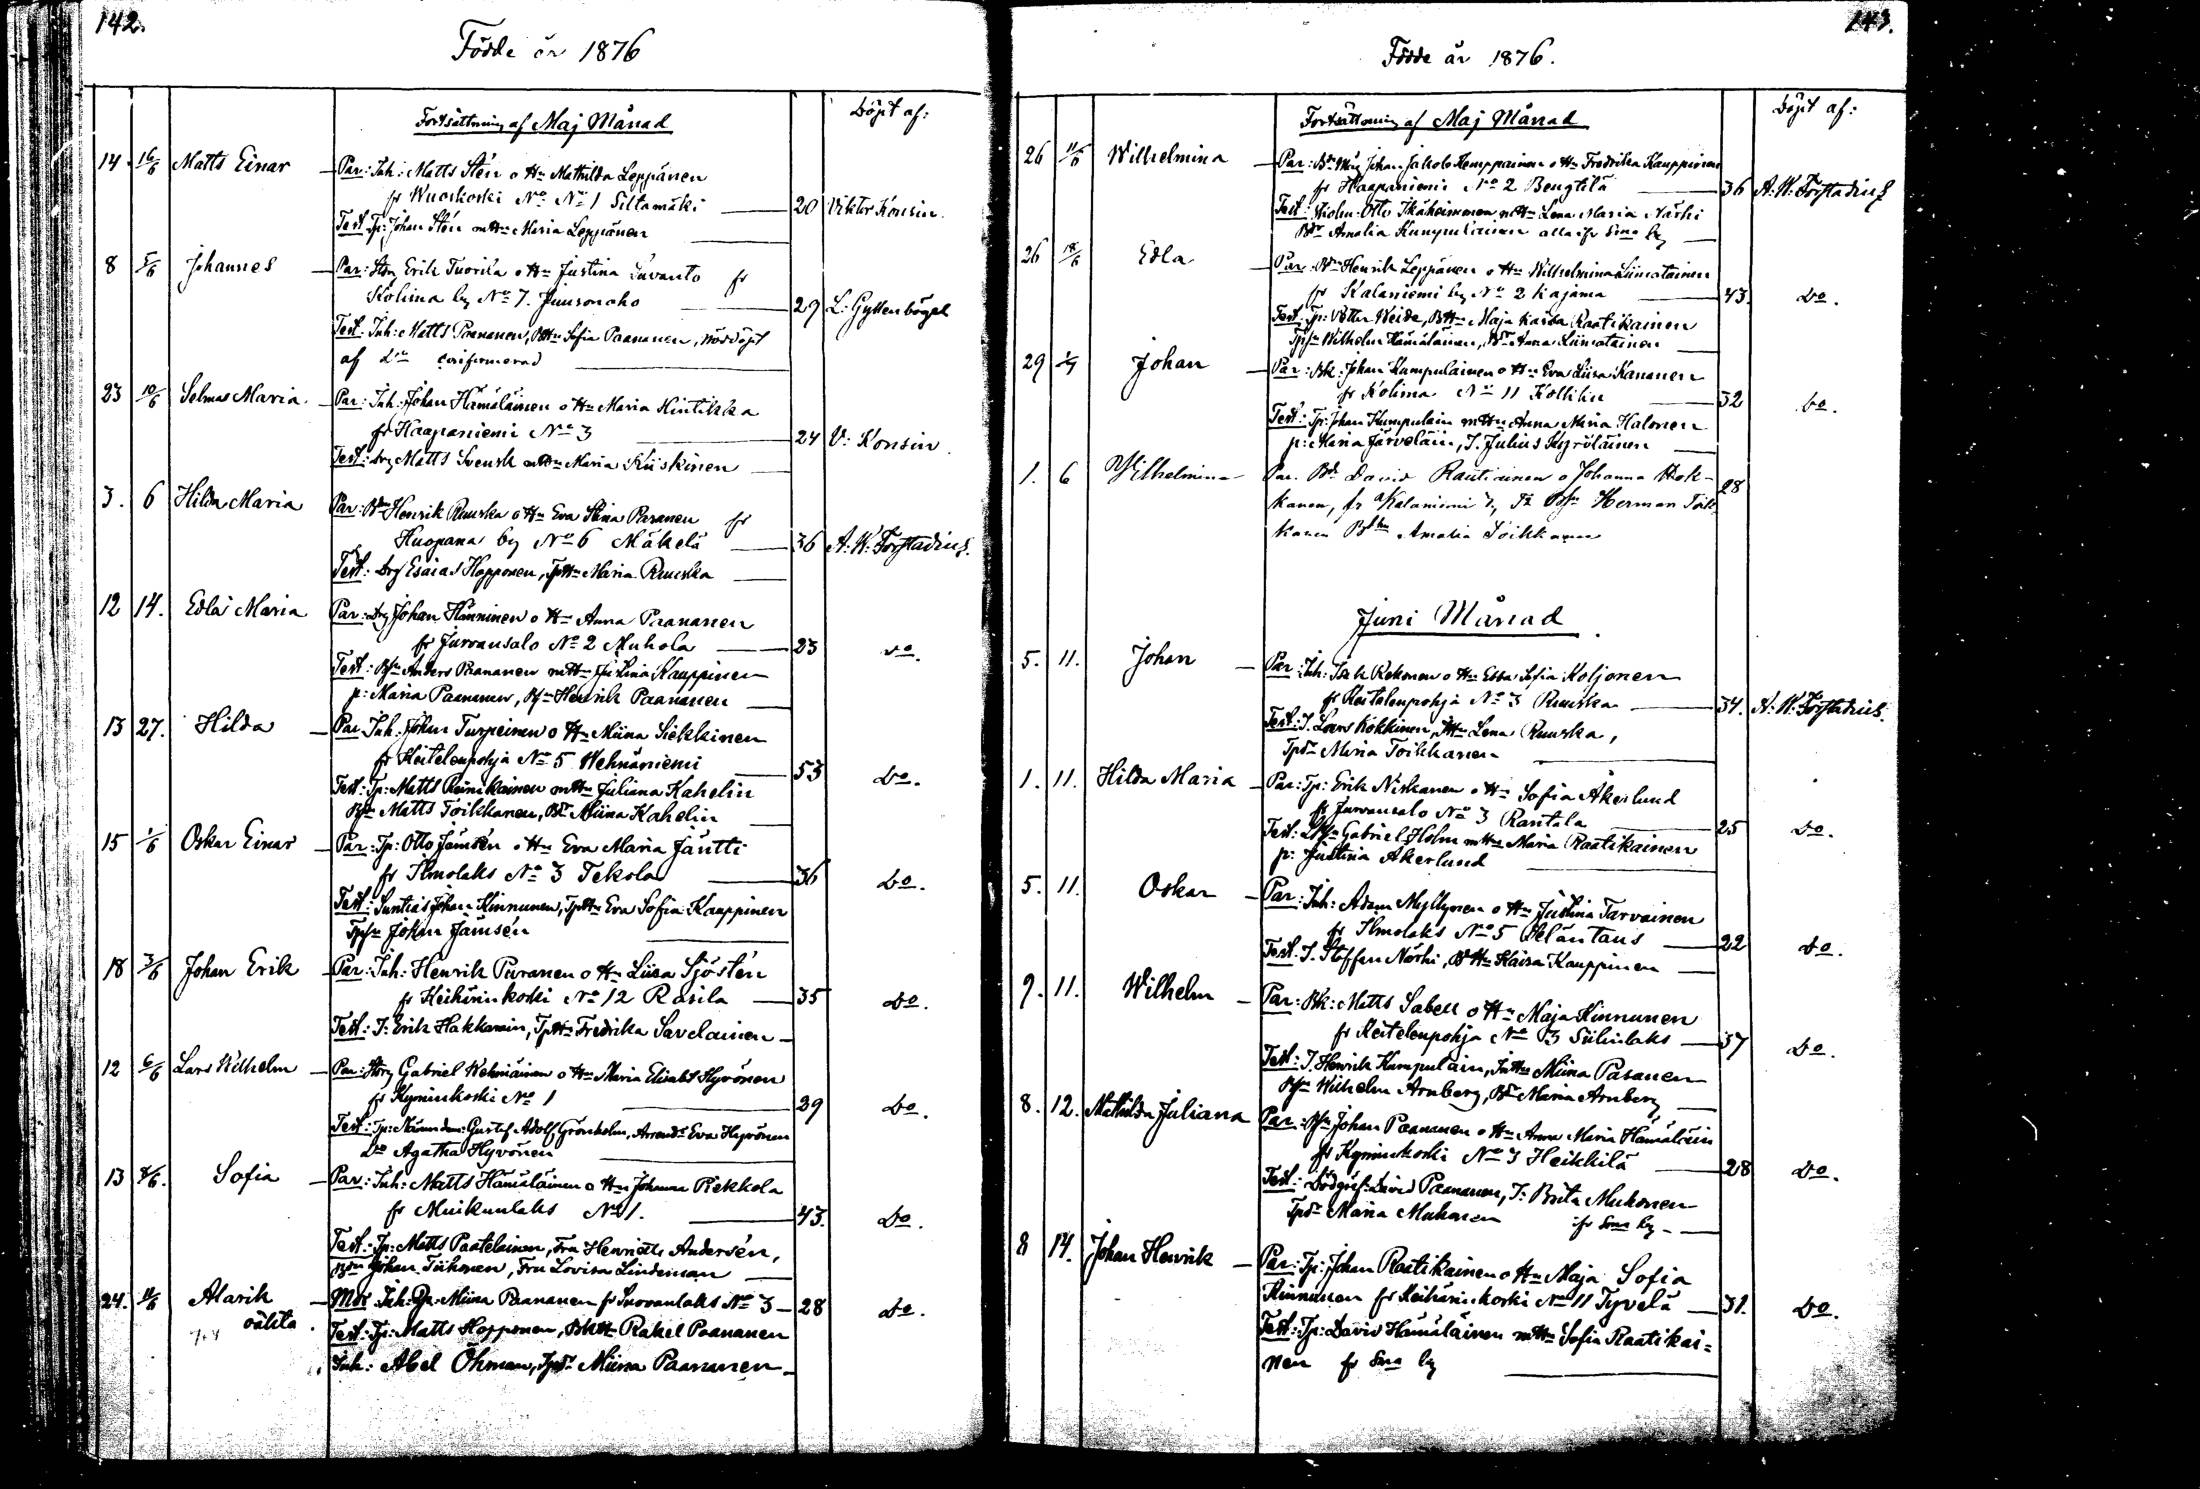 142.
Födde år 1876
Fortsättning af Maj Månad
Döpt af:
14. 16/6 Matts Einar — Par: Inh: Matts Stén o Hu Mathilda Leppänen
fr Wuoskoski No No 1 Siltamäki — 20 Viktor Konsin.
Test Tp: Johan Stén m Hu Maria Leppänen —
8 5/6 Johannes — Par: Erik Tuorila o Hu Justina Luvanto fr
Kolima by No 7. Juusoncho — 29 L: Gyllenbögel
Test: Inh: Matts Paananen, Sofia Paananen, nöddöpt
af Do confirmerad —
23 10/6 Selma Maria. — Par: Inh: Johan Hämäläinen o Hu Maria Hintikka
fr Haapaniemi No 3 — 24 V: Konsin.
Test: Drg Matts Svensk m Hu Maria Kiiskinen —
3. 6 Hilda Maria Par: Bdn Henrik Ruuska o Hu Eva Stina Paranen fr
Huopana by No 6 Mäkelä — 36 A: W: Forstadius.
Test: Drg Esaias Hopponen, Maria Ruuska —
12 14. Edla Maria Par: Drg Johan Hänninen o Hu Anna Paananen
fr Jurvansalo No 2 Muhola — 23 Do.
Test: Anders Paananen m Hu Lina Kauppinen
p: Maria Paananen, Henrik Paananen —
13 27. Hilda — Par Inh: Johan Turpeinen o Hu Miina Siekkinen
fr Keitelenpohja No 5 Wehnäniemi — 53 Do.
Test: Tp: Matts Reinikainen m Hu Juliana Kahelin
Matts Toikkanen, Miina Kahelin —
15 1/6 Oskar Einar — Par: Tp: Otto Jämsén o Hu Eva Maria Jäntti
fr Ilmolaks No 3 Tekola — 36 Do.
Test: Johan Kinnunen, Eva Sofia Kauppinen
Johan Jämsén —
18 3/6 Johan Erik — Par: Inh: Henrik Puranen o Hu Liisa Sjöstén
fr Keihärinkoski No 12 Rasila — 35 Do.
Test: J: Erik Hakkarain, Fredrika Savolainen —
12 6/6 Lars Wilhelm — Par: Gabriel Wehniäinen o Hu Maria Elisabet Hyvönen
fr Kyminkoski No 1 — 29 Do.
Test: Tp: Gustaf Adolf Grönholm, Eva Hyvönen
Do Agatha Hyvönen —
13 8/6. Sofia — Par: Inh: Matts Hämäläinen o Hu Johanna Rekkola
fr Muikunlaks No 1. — 43. Do.
Test: Tp: Matts Paatelainen, Fru Henriette Andersén,
Johan Tiihonen, Fru Lovisa Lindeman —
24. 11/6 Alarik — Mor Inh: Miina Paananen fr Suovanlaks No 3 — 28 Do.
oäkta. Test: Tp: Matts Hopponen, Rakel Paananen
Inh: Abel Öhman, Miina Paananen —
143.
Födde år 1876.
Fortsättning af Maj Månad
Döpt af:
26 11/6 Wilhelmina — Par: Johan Jakob Kemppainen o Hu Fredrika Kauppinen
fr Haapaniemi No 2 Bengtilä — 36 A. W. Forstadius
Test: Otto Ikäheimonen m Hu Lena Maria Närhi
Amalia Kumpulainen alla ifr Sma by —
26 18/6 Edla — Par: Henrik Leppänen o Hu Wilhelmina Liimatainen
fr Kalaniemi by No 2 Kajama — 43. Do.
Test: Tp: Petter Weide, Maja Kaisa Raatikainen
Wilhelm Hämäläinen, Anna Liimatainen —
29 1/7 Johan — Par: Bk: Johan Kumpulainen o Hu Eva Liisa Kananen
fr Kolima No 11 Kollikn — 32 Do.
Test: Tp: Johan Kumpulain m Hu Anna Maria Halonen
p: Maria Järveläin, J. Julius Kyröläinen —
1. 6 Wilhelmina Par. David Rautiainen o Johanna Hok-
kanen, fr Kalaniemi 28
Herman Toik-
kanen Amalia Toikkanen
Juni Månad
5. 11. Johan — Par: Inh: Isak Kekonen o Hu Ebba Sofia Koljonen
fr Keitelenpohja No 3 Ruuska — 34. A. W. Forstadius.
Test: J. Lars Kokkinen, Lena Ruuska,
Maria Toikkanen —
1. 11. Hilda Maria — Par: Tp: Erik Niskanen o Hu Sofia Åkerlund
fr Jurvansalo No 3 Rantala — 25 Do.
Test: Gabriel Holm m Hu Maria Raatikainen
p: Justina Åkerlund —
5. 11. Oskar — Par: Inh: Adam Myllynen o Hu Justina Tarvainen
fr Ilmolaks No 5 Peläntaus — 22 Do.
Test. J. Staffan Närhi, Kaisa Kauppinen —
9. 11. Wilhelm — Par: Bk: Matts Sabell o Hu Maja Kinnunen
fr Keitelenpohja No 3 Siilinlaks — 37 Do.
Test: J. Henrik Kumpulain, Miina Pasanen
Wilhelm Arnberg, Maria Arnberg —
8. 12. Mathilda Juliana Par: Johan Paananen o Hu Anna Maria Hämäläin
fr Kyminkoski No 3 Heikkilä — 28 Do.
Test: Dödgräf: David Paananen, J: Brita Muhonen
Maria Muhonen ifr Sma by —
8 14. Johan Henrik — Par: Tp: Johan Raatikainen o Hu Maja Sofia
Kinnunen fr Keihärinkoski No 11 Tyvelä — 31. Do.
Test: Tp: David Hämäläinen m Hu Sofia Raatikai=
nen fr Sma by —